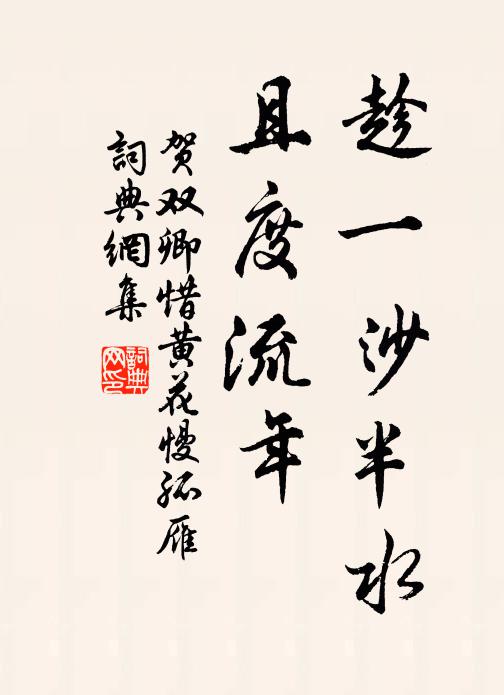 趁一沙半水
且度流年
贺双卿惜黄花慢孤雁
詞典網集
詞典
网印